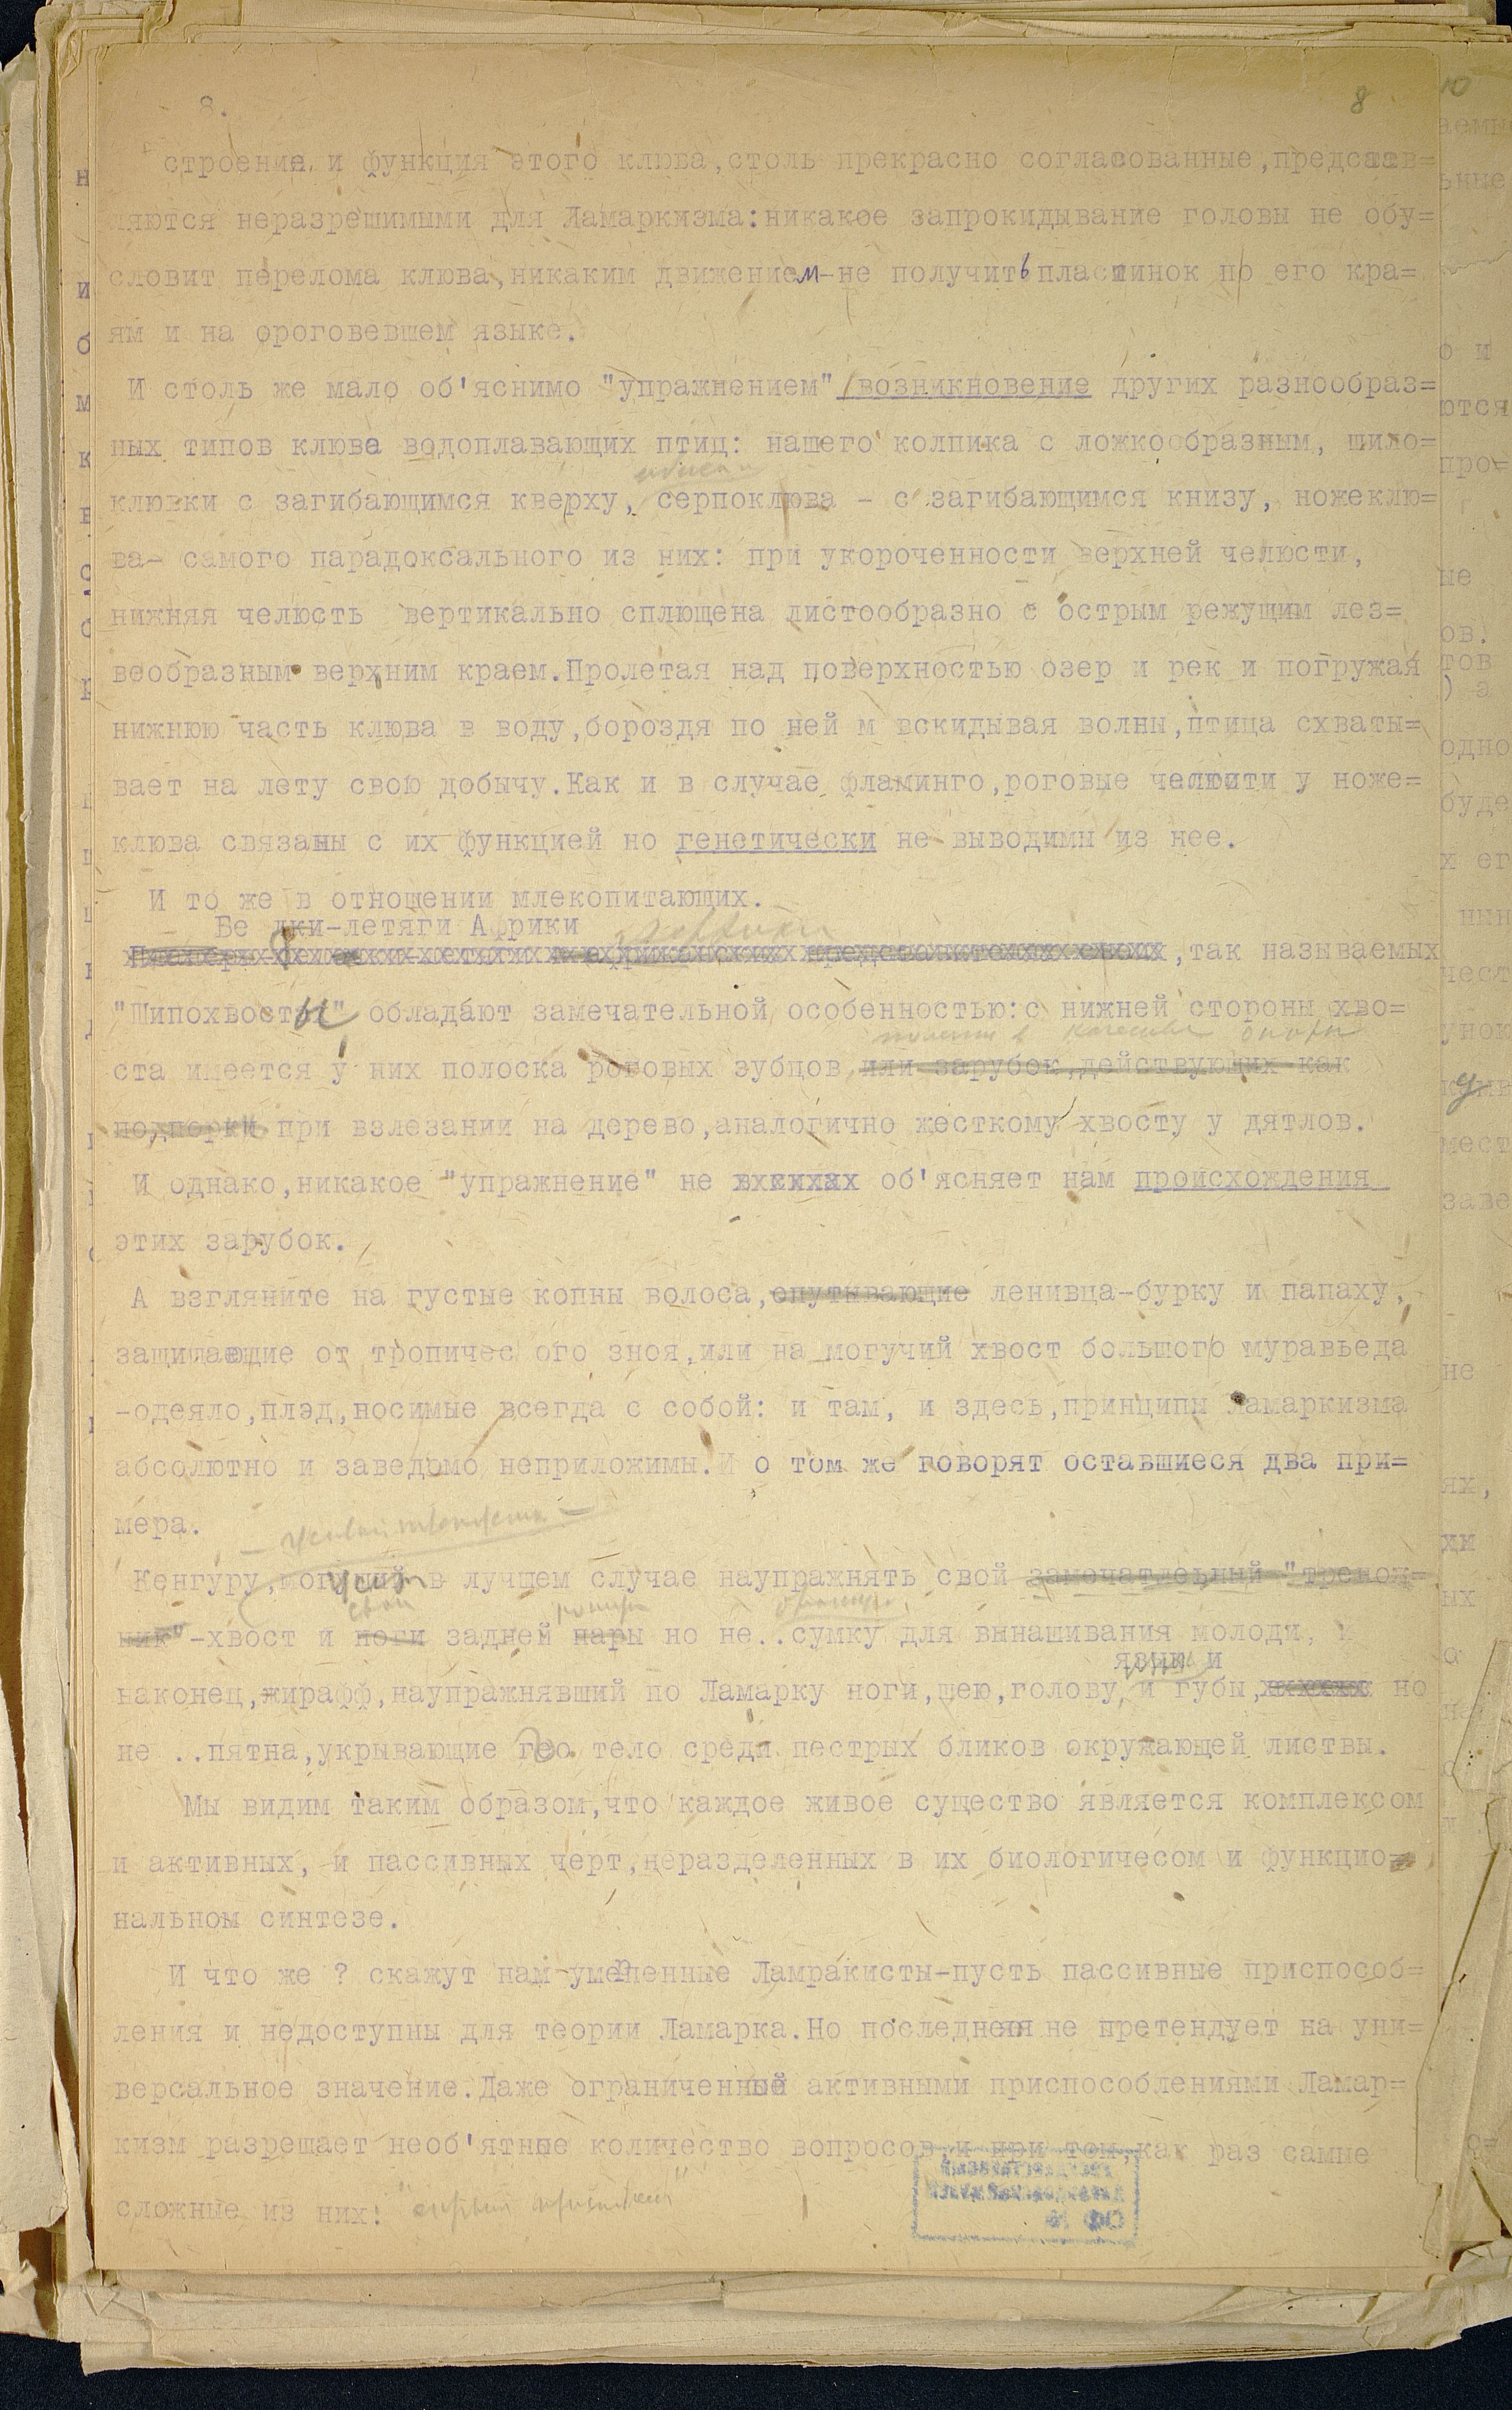 8. 8
строение и функция этого клюва,столь прекрасно согласованные,представ=
ляются неразрешимыми для Ламаркизма:никакое запрокидывание головы не обу=
словит перелома клюва,никаким движением-не получить пластинок по его кра=
ям и на ороговевшем языке.
И столь же мало об'яснимо "упражнением" возникновение других разнообраз=
ных типов клюва водоплавающих птиц: нашего колпика с ложкообразным, шило=
клювки с загибающимся кверху, серпоклюва - с загибающимся книзу, ножеклю=
ва- самого парадоксального из них: при укороченности верхней челюсти,
нижняя челюсть вертикально сплющена листообразно с острым режущим лез=
веобразным верхним краем.Пролетая над поверхностью озер и рек и погружая
нижнюю часть клюва в воду,бороздя по ней м вскидывая волны,птица схваты=
вает на лету свою добычу.Как и в случае фламинго,роговые челюсти у ноже=
клюва связаны с их функцией но генетически не выводимы из нее.
И то же в отношении млекопитающих.
Бе лки-летяги Африки
,так называемых
"Шипохвосты" обладают замечательной особенностью:с нижней стороны хво=
в качестве опоры
ста имеется у них полоска роговых зубцов или зарубок,действующих как
подпорки при взлезании на дерево,аналогично жесткому хвосту у дятлов.
И однако,никакое "упражнение" не об'ясняет нам происхождения
этих зарубок.
А взгляните на густые копны волоса,опутывающие ленивца-бурку и папаху,
защищающие от тропичес ого зноя,или на могучий хвост большого муравьеда
-одеяло,плэд,носимые всегда с собой: и там, и здесь,принципы Ламаркизма
абсолютно и заведомо неприложимы.И о том же говорят оставшиеся два при=
мера.
Кенгуру,могущий в лучшем случае наупражнять свой замечатлеьный "тренож=
свои
ник"-хвост и ноги задней пары но не..сумку для вынашивания молоди, и
язык и
наконец,жирафф,наупражнявший по Ламарку ноги,шею,голову, и губы, но
не ..пятна,укрывающие его тело среди пестрых бликов окружающей листвы.
Мы видим таким образом,что каждое живое существо является комплексом
и активных, и пассивных черт,неразделенных в их биологичесом и функцио=
нальном синтезе.
И что же ? скажут нам умеренные Ламракисты-пусть пассивные приспособ=
ления и недоступны для теории Ламарка.Но последняя не претендует на уни=
версальное значение.Даже ограниченный активными приспособлениями Ламар=
кизм разрешает необ'ятное количество вопросов,и при том,как раз самые
сложные из них: